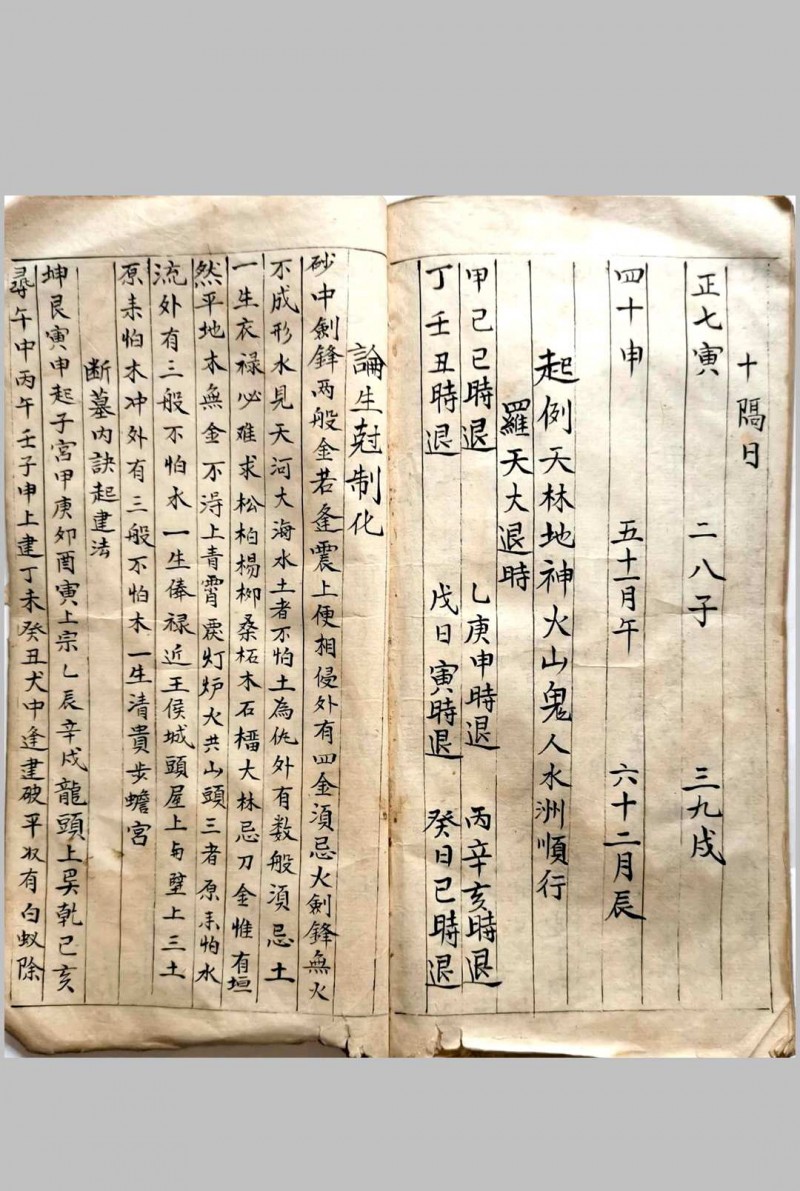 十隔日
正七寅　二八子　三九戌
四十申　五十一月午　六十二月辰
起例天林地神火山鬼人水洲順行
羅天大退時
甲己巳時退　乙庚申時退　丙辛亥時退
丁壬丑時退　戊日寅時退　癸日巳時退
論生尅制化
砂中劍鋒两般金若逢震上便相侵外有四金須忌火劍鋒無火
不成形水見天河大海水土者不怕土為仇外有数般須忌土
一生衣禄必难求松柏楊柳桑柘木石橊大林忌刀金惟有垣
然平地木無金不淂上青霄震灯炉火共山頭三者原来怕水
流外有三般不怕水一生俸禄近王侯城頭屋上与壁上三土
原来怕木冲外有三般不怕木一生清貴步蟾宮
断墓内訣起建法
坤艮寅申起子宮甲庚卯酉寅上宗乙辰辛戌龍頭上巽乾巳亥
尋午中丙午壬子申上建丁未癸丑犬中逢建破平收有白蚁除